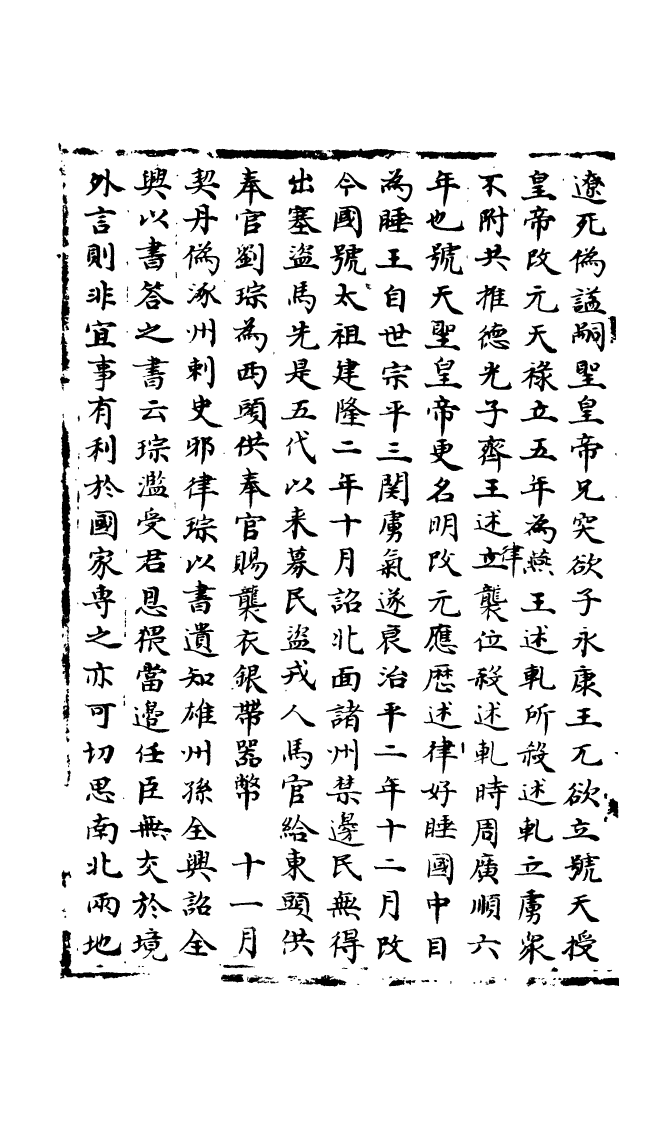 遼死偽諡嗣聖皇帝兄突欲子永康王兀欲立號天授
皇帝改元天祿立五年為燕王述軋所殺述軋立虜衆
不附共推德光子齊王述律立襲位殺述軋時周廣順六
年也號天聖皇帝更名明改元應歷述律好睡國中目
為睡王自世宗平三関虜氣遂衰治平二年十二月改
今國號太祖建隆二年十月詔北面諸州禁邊民無得
出塞盜馬先是五代以来募民盜戎人馬官給東頭供
奉官劉琮為西頭供奉官賜襲衣銀帶器幣 十一月
契丹偽涿州刺史邪律琮以書遺知雄州孫全興詔全
興以書答之書云琮濫受君恩猥當邉任臣無交於境
外言則非宜事有利於國家専之亦可切思南北兩地